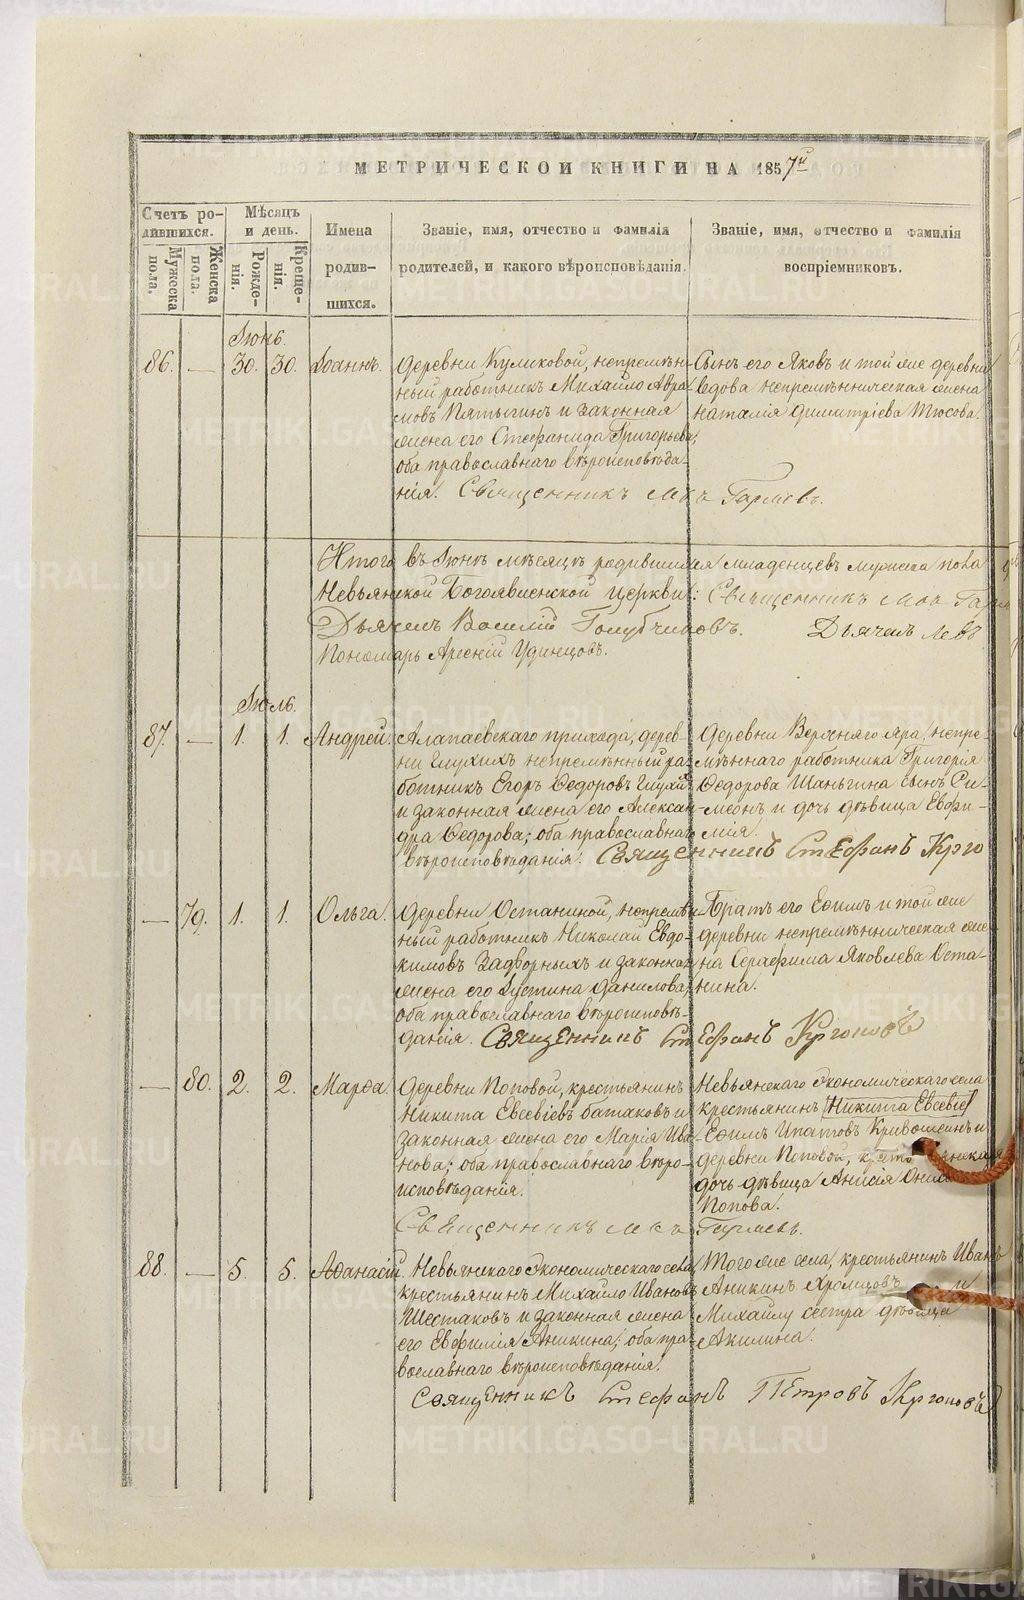 МЕТРИЧЕСКОЙ КНИГИ НА 1857й
Счетъ ро-
дившихся.
Мужеска
пола.
Женска
пола.
Мѣсяцъ
и день.
Рожде-
нія.
Креще-
нія.
Имена
родив-
шихся.
Званіе, имя, отчество и фамилія
родителей, и какого вѣроисповѣданія.
Званіе, имя, отчество и фамилія
воспріемниковъ.
Іюнь.
86. — 30. 30. Іоаннъ.
Деревни Куликовой, непремѣн-
ный работникъ Михайло Авра-
мовъ Пятыгинъ и законная
жена его Стефанида Григорьева;
оба православнаго вѣроисповѣда-
нія.
Сынъ его Яковъ и той же деревни
вдова непремѣнническая жена
Наталія Димитріева Тюсова.
Священникъ
Итого въ Іюнѣ мѣсяцѣ родившихся младенцевъ мужеска пола
Невьянской Богоявленской церкви: Священникъ
Дьячекъ Василій Голубчиковъ. Дьячекъ Левъ
Пономарь Арсеній Удинцовъ.
Іюль.
87. — 1. 1. Андрей.
Алапаевскаго прихода, дерев-
ни Глухихъ непремѣнный ра-
ботникъ Егоръ Ѳедоровъ Глухихъ
и законная жена его Алексан-
дра Ѳедорова; оба православнаго
вѣроисповѣданія.
Деревни Верхняго яра, непре-
мѣннаго работника Григорія
Ѳедорова Шаньгина сынъ Си-
меонъ и дочь дѣвица Евфи-
мія.
Священникъ Стефанъ
— 79. 1. 1. Ольга.
Деревни Останиной, непремѣн-
ный работникъ Николай Евдо-
кимовъ Задворныхъ и законная
жена его Іустина Данилова;
оба православнаго вѣроисповѣ-
данія.
Братъ его Ефимъ и той же
деревни непремѣнническая же-
на Серафима Яковлева Оста-
нина.
Священникъ Стефанъ
— 80. 2. 2. Марѳа.
Деревни Поповой, крестьянинъ
Никита Евсевіевъ Батаковъ и
законная жена его Марія Ива-
нова; оба православнаго вѣро-
исповѣданія.
Невьянскаго Экономическаго села
крестьянинъ Никита Евсевіев
Ефимъ Ипатовъ Кривошеинъ и
деревни Поповой,
дочь дѣвица Анисія
Попова.
Священникъ
88. — 5. 5. Аѳанасій.
Невьянскаго Экономическаго села,
крестьянинъ Михайло Ивановъ
Шестаковъ и законная жена
его Евфимія Аникина; оба пра-
вославнаго вѣроисповѣданія.
Того же села, крестьянинъ Иванъ
Аникинъ Хромцовъ и
Михайлу сестра дѣвица
Акилина.
Священникъ Стефанъ Петровъ
METRIKI.GASO-URAL.RU